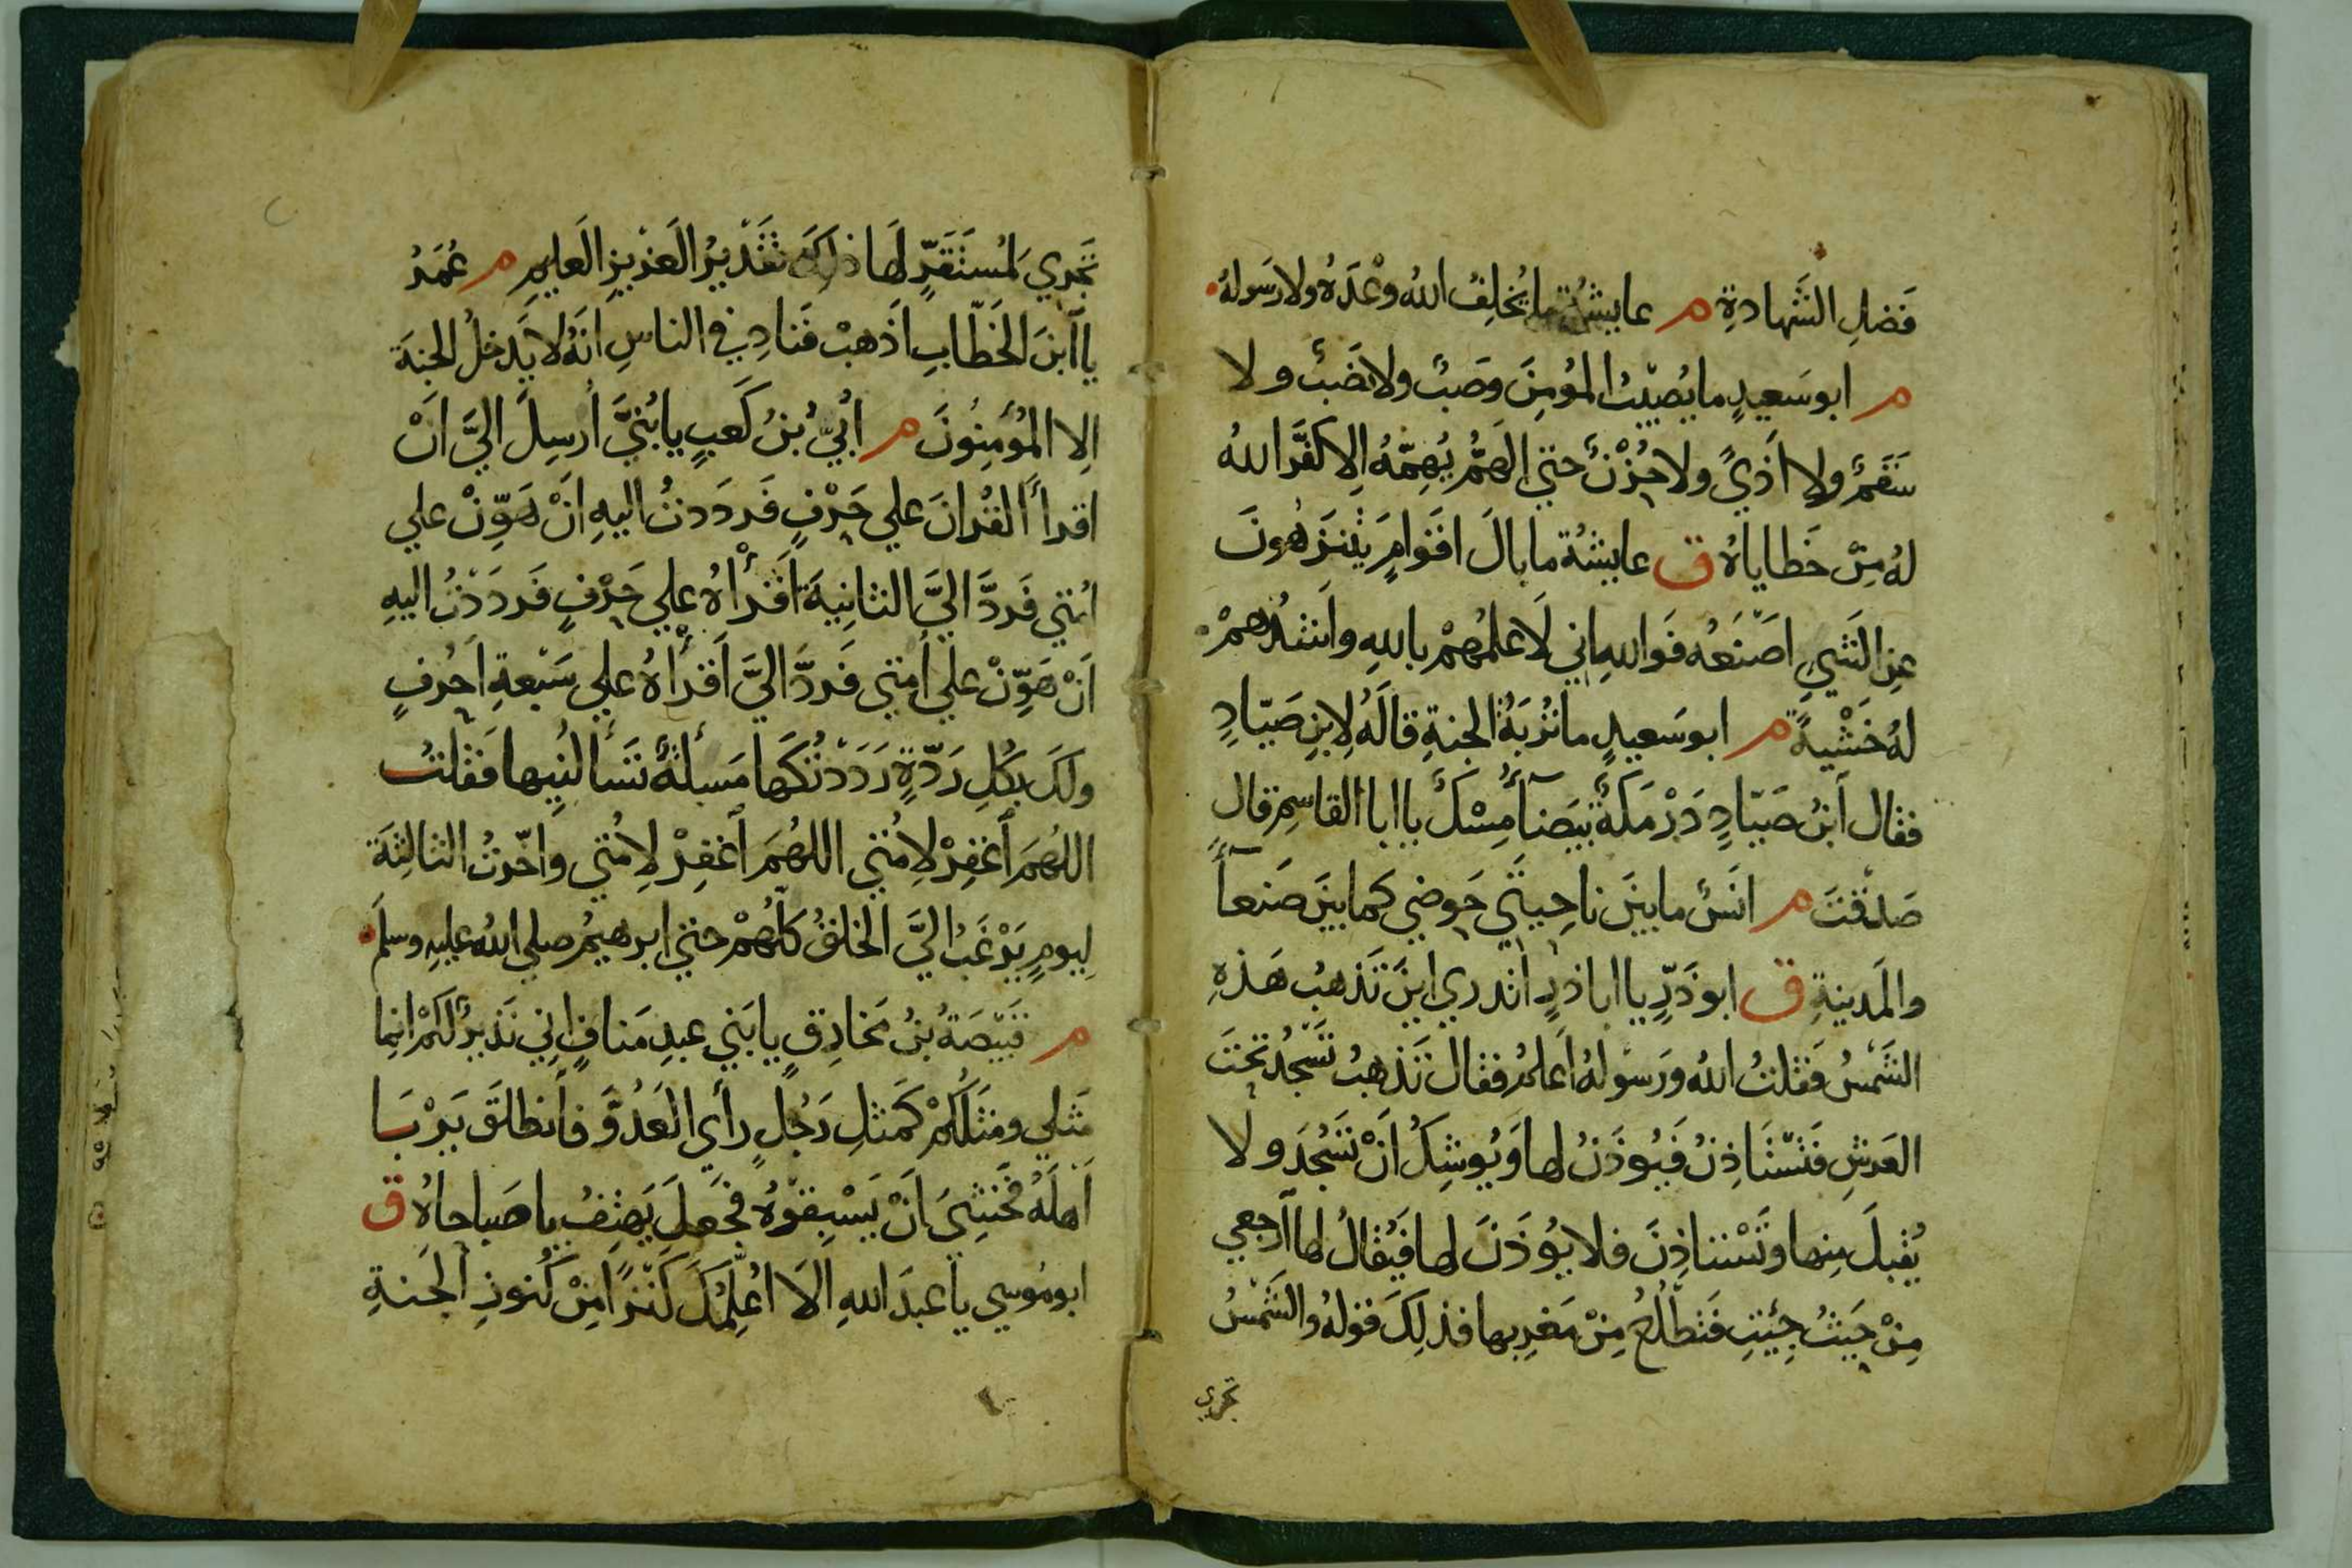 فَضلِ الشَّهادةِ م عايشةُ ما يُخلِفُ اللهُ وعْدَهُ ولا رَسولهُ
م ابو سَعيدٍ ما يُصيْبُ المؤمِنَ وصَبٌ ولا نصَبٌ ولا
سَقَمٌ ولا اَذيً ولا حُزْنٌ حتي الهَمُّ يُهِمُّهُ اِلا كفَّرَ اللهُ
لهُ مِنْ خَطاياهُ ق عايشةُ ما بالَ اقوامٍ يتنزهُونَ
عنِ الشيِ اصْنَعُه فوَاللهِ اني لَاعلمُهمْ باللهِ واَشدُهمْ
لهُ خَشْيةً م ابو سَعيدٍ ما تُربَةُ الجنةِ قالَهُ لِابنِ صَيّادِ
فقال اَبنُ صَيّادٍ دَرْمَكةٌ بيَضآءُ مِسْكٌ يا ابا القاسِم قال
صَدقْتَ م انَسٌ ما بينَ ناحِيتَي حَوضي كما بينَ صَنعآءَ
والمَدينةِ ق ابو ذَرٍّ يا ابا ذرٍ اتدري اينَ تَذهبُ هَذهِ
الشَّمْسُ فقلتُ اللهُ ورَسوْلهُ اَعلمُ فقال تَذهبُ تَسْجُدُ تحتَ
العَرشِ فَتسْتَاذِنُ فَيُوذَنُ لها وَيُوشِكُ اَنْ تَسْجُدَ ولا
يُقبلَ مِنها وتَسْتاذِنَ فلا يُوذَنَ لها فيُقالُ لها اَرجعي
مِنْ حَيثُ جِئتِ فَتطْلُعُ مِنْ مَغرِبِها فذلِكَ قولهُ والشَّمْسُ
تجري
تَجْري لمُستَقَرٍّ لَها ذلِكَ تقَدْيرُ العَزيزِ العَليمِ م عُمَرُ
يا آبنَ الخَطّابِ اَذهبْ فنَادِ في الناسِ انَهُ لا يَدخلُ الجنةَ
اِلا المُؤمِنُونَ م ابُيّ بْنُ كَعبٍ يا ابُيَّ اُرسِلَ اليَّ اَنْ
اقرأَ القُرانَ علي حَرْفٍ فَردَدتُ اليهِ اَنْ هَوِّنْ علي
امُتي فَردَّ اليَّ الثانِيةَ اَقرأْهُ علي حَرْفٍ فَردَدْتُ اليهِ
اَنْ هَوِّنْ علي اُمتي فَردَّ اليَّ اَقرأْهُ علي سَبْعةِ اَحرُفٍ
ولكَ بكُلِ رَدّةٍ رَدَدْتُكَها مَسئلةٌ تَسأَلُنِيها فَقلتُ
اللهُمَ اَغفِرْ لاِمُتي اللهُمَ اَغفِرْ لاِمُتي واخّرتُ الثالِثةَ
لِيومٍ يَرْغَبُ اليَّ الخلقُ كلّهُمْ حتي ابرهيمُ صلي اللهُ عليهِ وسلَم
م قَبيّصَةُ بنُ مَخارِقٍ يا بَني عبدِ مَنافٍ اني نَذيرٌ لكمْ انما
مَثلي ومَثلُكُمْ كَمَثلِ رَجُلٍ رأَي العَدُوَّ فاَنطلقَ يَرْبَأُ
اَهلَهُ فخَشِيَ اَنْ يَسْبِقوْهُ فجَعلَ يَهتِفُ يا صَباحاهُ ق
ابو مُوسي يا عبدَ اللهِ الَا اعُلِّمُكَ كَنْزًا مِنْ كنُوزِ الجَنةِ